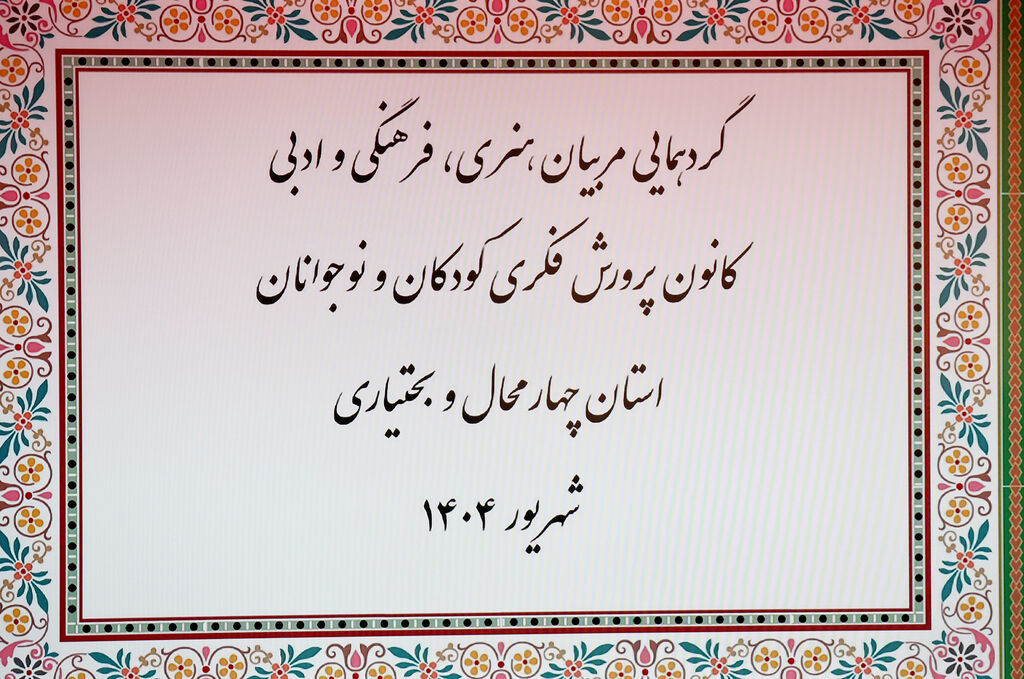 گردهمایی مربیان هنری، فرهنگی و ادبی
کانون پرورش فکری کودکان و نوجوانان
استان چهارمحال و بختیاری
شهریور ۱۴۰۴